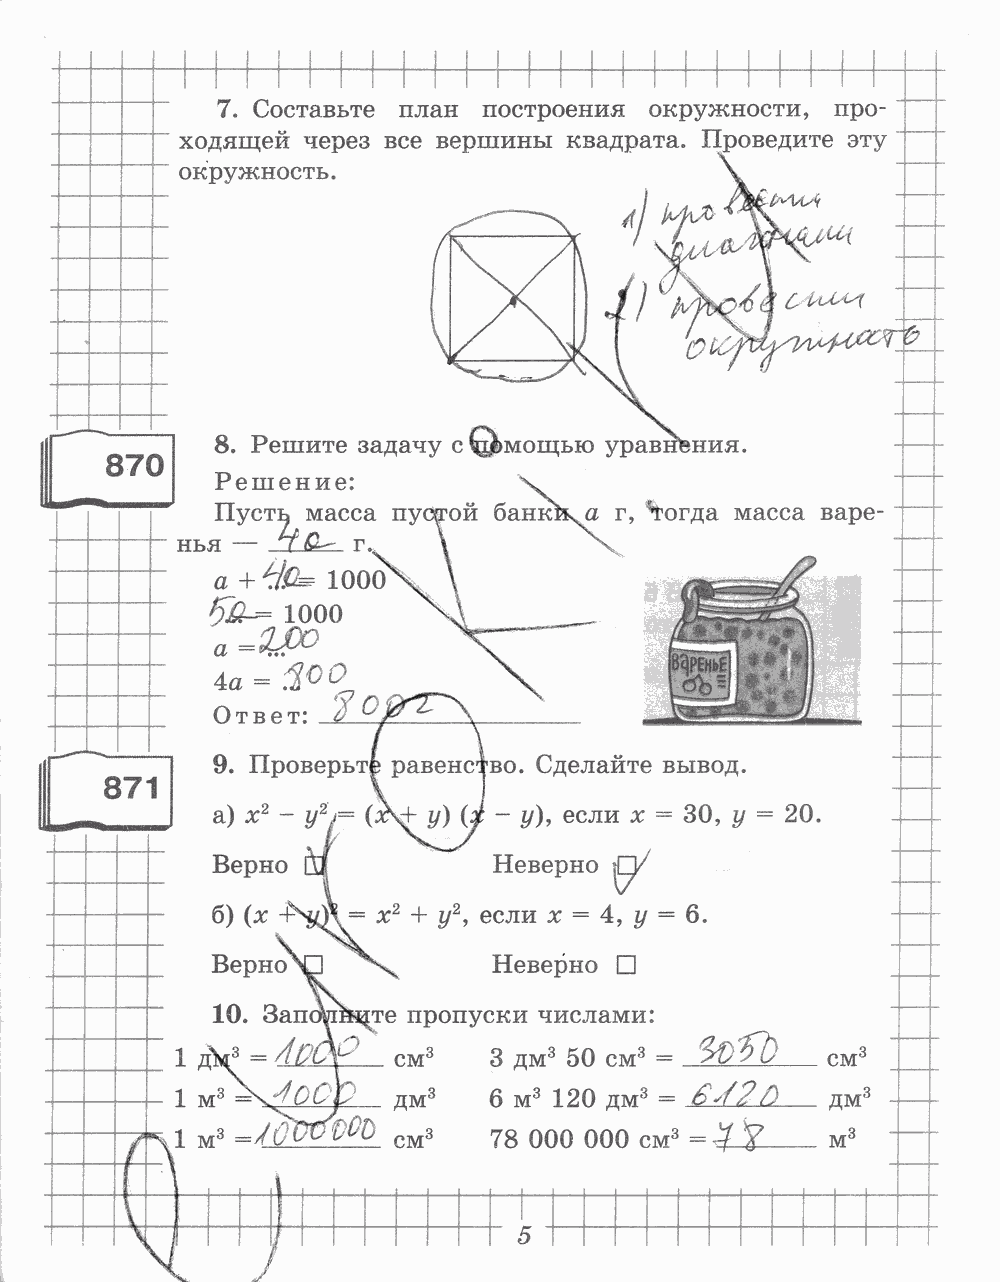 7. Составьте план построения окружности, про-
ходящей через все вершины квадрата. Проведите эту
окружность.
1) провести
диагонали
2) провести
окружность
870
8. Решите задачу с помощью уравнения.
Решение:
Пусть масса пустой банки a г, тогда масса варе-
нья — 4a г.
a + 4a = 1000
5a = 1000
a = 200
4a = 800
Ответ: 800г
ВАРЕНЬЕ
871
9. Проверьте равенство. Сделайте вывод.
а) x² − y² = (x + y) (x − y), если x = 30, y = 20.
Верно Неверно
б) (x + y)² = x² + y², если x = 4, y = 6.
Верно Неверно
10. Заполните пропуски числами:
1 дм³ = 1000 см³ 3 дм³ 50 см³ = 3050 см³
1 м³ = 1000 дм³ 6 м³ 120 дм³ = 6120 дм³
1 м³ = 1000000 см³ 78 000 000 см³ = 78 м³
5